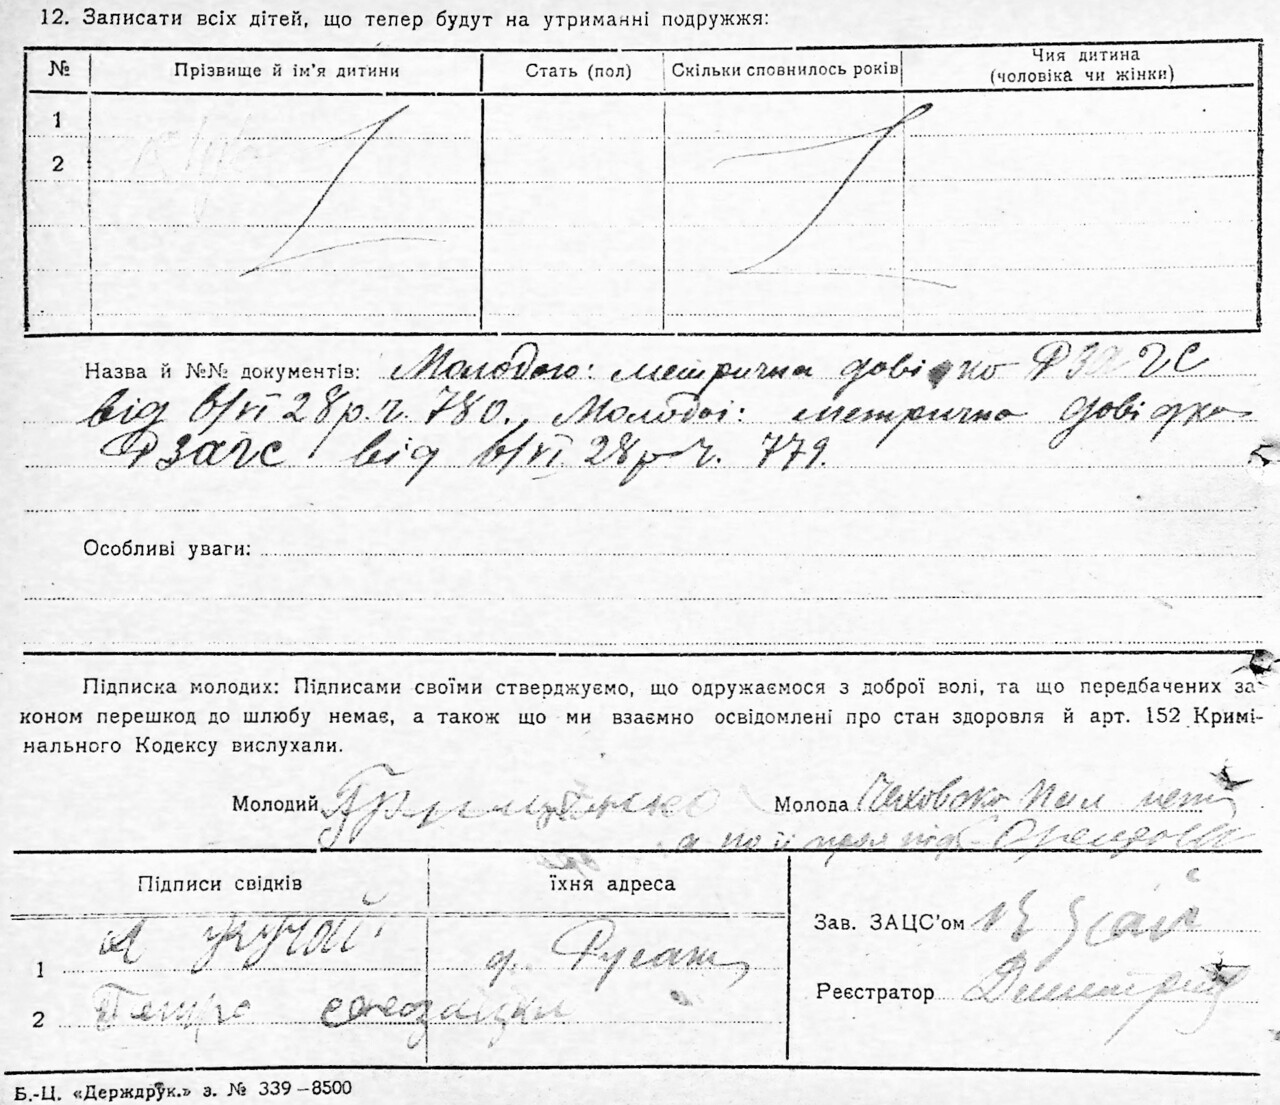 12. Записати всіх дітей, що тепер будут на утриманні подружжя:
№ Прізвище й ім'я дитини Стать (пол) Скільки сповнилось років Чия дитина
(чоловіка чи жінки)
1
2
Назва й №№ документів: Молодого: метрична довідко РЗАГС
від 6/VI 28 р. ч. 780. Молодої: метрична довідка
РЗАГС від 6/VI 28 р. ч. 779.
Особливі уваги:
Підписка молодих: Підписами своїми стверджуємо, що одружаємося з доброї волі, та що передбачених за-
коном перешкод до шлюбу немає, а також що ми взаємно освідомлені про стан здоровля й арт. 152 Кримі-
нального Кодексу вислухали.
Молодий Молода
Підписи свідків їхня адреса
Зав. ЗАЦС'ом
1
Реєстратор
2 Петро
Б.-Ц. «Держдрук.» з. № 339–8500